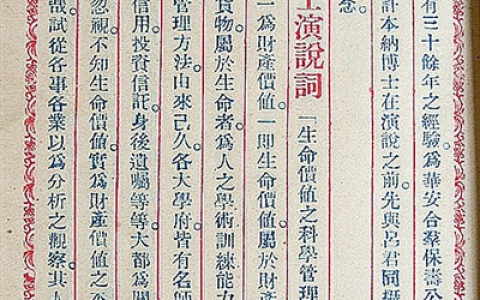 有三十餘年之經驗。爲華安合羣保壽
計本納博士在演說之前先與呂君岡
念。
士演說詞 「生命價值之科學管理
一爲財產價值。一卽生命價值。屬於財產
貨物。屬於生命者。爲人之學術訓練能力
管理方法。由來已久。各大學府皆有名師
信用投資信託。身後遺囑等等。大都爲關
忽視。不知生命價值實爲財產價值之
哉。試從各事各業以爲分析之觀察。其人